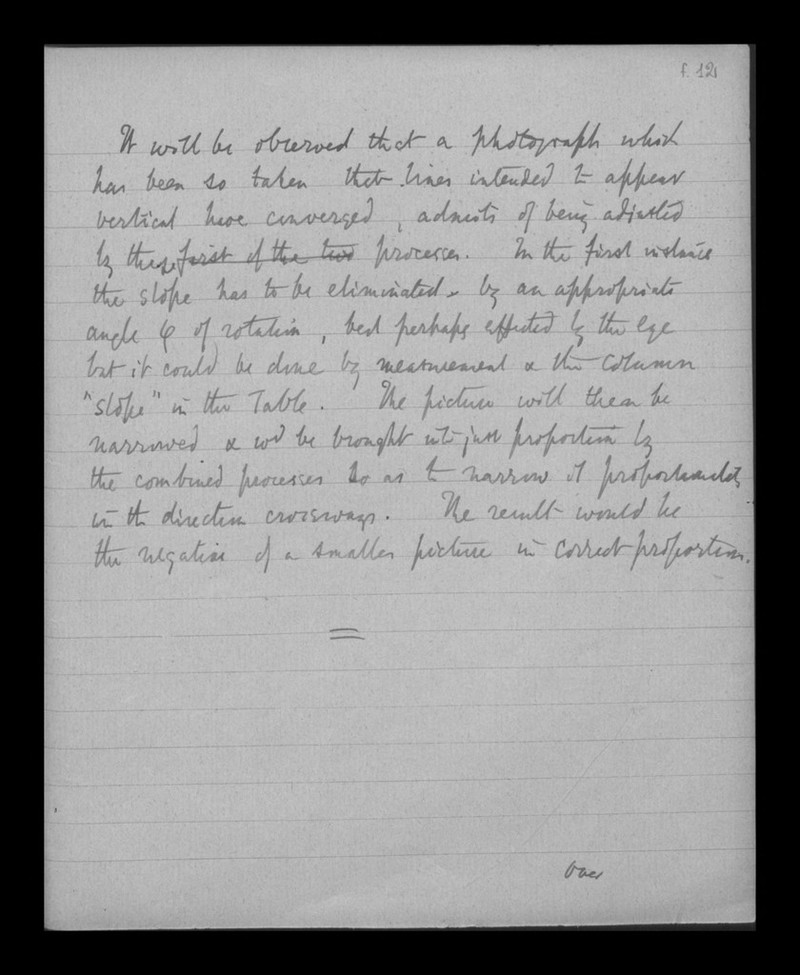 f. 12
It will be observed that a photograph which
has been so taken that lines intended to appear
vertical have converged, admits of being adjusted
by these first of the two processes. In the first instance
the slope has to be eliminated by an appropriate
angle φ of rotation, best perhaps effected by the eye
but it could be done by measurement & the column
"slope" in the Table. The picture will then be
narrowed & wd be brought into just proportion by
the combined processes so as to narrow it proportionately
in the direction crossways. The result would be
the negative of a smaller picture in correct proportion.
over